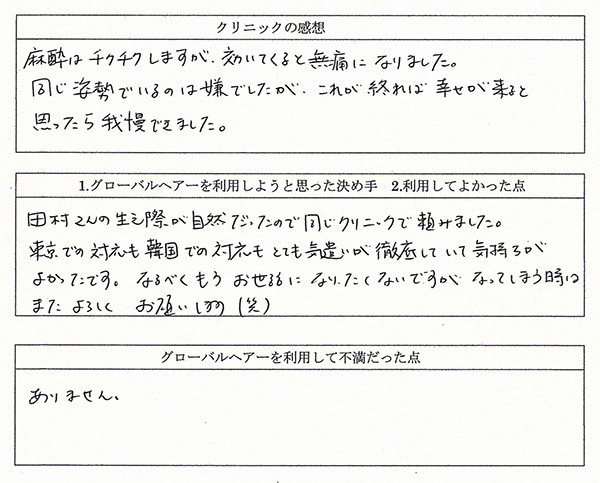 クリニックの感想
麻酔はチクチクしますが、効いてくると無痛になりました。
同じ姿勢でいるのは嫌でしたが、これが終れば幸せが来ると
思ったら我慢できました。
1.グローバルヘアーを利用しようと思った決め手　2.利用してよかった点
田村さんの生え際が自然だったので同じクリニックで頼みました。
東京での対応も韓国での対応もとても気遣いが徹底していて気持ちが
よかったです。なるべくもうお世話になりたくないですがなってしまう時は
またよろしくお願いします(笑)
グローバルヘアーを利用して不満だった点
ありません。